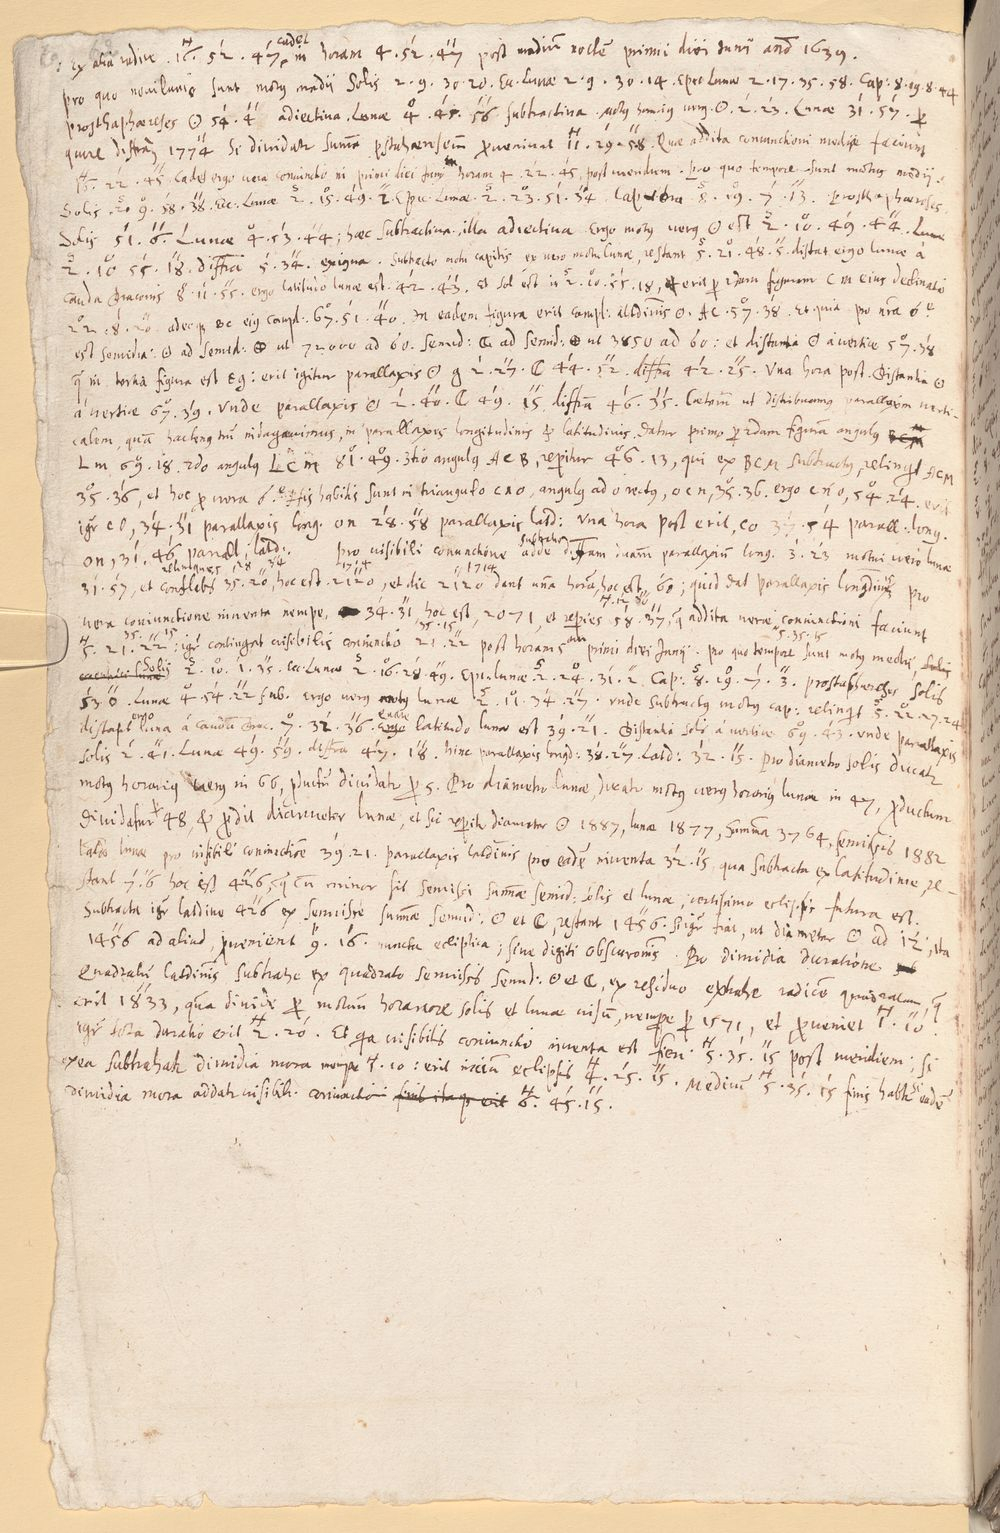 ex alia radice . 16 . 52 . 47, cadet in horam 4 . 52 . 47 post mediũ noctẽ primi diei Junii anñ 1639.
pro quo novilunio sunt motq medii Solis 2 . 9 . 30 . 20. Ec. Lunae 2 . 9 . 30 . 14. Epec Lunae 2 . 17 . 35 . 58. Cap: 8 . 19 . 8 . 44
prosthaphæreses ☉ 54 . 4 adiectiva. Lunae 4 . 45 . 56 subtractiva. Motq horariq verq ☉ 2 . 23. Lunae 31 . 57.
quare diffrã 1774 Si dividatr summa provenient 11 . 29 . 58. Quae addita coniunctioni mediæ faciunt
16 . 22 . 45. Cadet ergo vera coniunctio in primi diei Junii horam 4 . 22 . 45, post meridiem. pro quo tempore sunt motus medii
Solis 2 . 9 . 58 . 38. Ec. Lunae 2 . 15 . 49 . 2. Epec. Lunae 2 . 23 . 51 . 34. Cap 8 . 19 . 7 . 13. Prosthaphæreses
Solis 51 . 6. Lunae 4 . 53 . 44; haec subtractiva, illa adiectiva ergo motq verq ☉ est 2 . 10 . 49 . 44. Lunae
2 . 10 . 55 . 18. diffrã 5 . 34. exigua. Subtracto motu capitis ex vero motu lunae, restant 5 . 21 . 48 . 5. distat ergo luna á
cauda draconis 8 . 11 . 55. ergo latitudo lunae est 42 . 43. et sol est in 2 . 10 . 55 . 18, et erit p 2dam figuram C M eius declinatio
22 . 8 . 20. adeoq BC eiq compl: 67 . 51 . 40. In eadem figura erit compl: altdinis ☉. AC . 57 . 38. et quia pro nrã 6
est semidia: ☉ ad semid: ⊕ ut 72000 ad 60. semid: ☾ ad semid: ⊕ ut 3850 ad 60: et distantia ☉ á vertice 57 . 38
q in tertia figura est EG: erit igitur parallaxis ☉ 2 . 27. ☾ 44 . 52. diffrã 42 . 25. Una hora post. Distantia ☉
á vertice 67 . 39. Unde parallaxis ☉ 2 . 40. ☾ 49 . 15. diffrã 46 . 35. Caeterum ut distribuamus parallaxim verti-
calem, quã hactenq indagavimus, in parallaxes longitudinis & latitudinis. datur primo p 2dam figurã angulq BCM
LM 69 . 18. 2do angulq LCM 81 . 49. 3tio angulq ACB, reperitur 46 . 13, qui ex BCM subtractq, relinqt ACM
35 . 36, et hoc p hora 6. habitis sunt in triangulo CNO, angulq ad o rectq, OCN, 35 . 36. ergo CNO, 54 . 24. erit
igr CO, 34 . 31 parallaxis long. ON 28 . 58 parallaxis latd: Una hora post erit, CO 37 . 54 parall: long.
ON, 31 . 46, parall; latd: Pro visibili coniunctione adde subtrahe diffram duarũ parallaxiũ long. 3 . 23 motui vero lunae
31 . 57, et conflabis relinques 35 . 20 28 34, hoc est . 2120 1714, et dic 2120 1714 dant unã horã, hoc est, 60; quid dat parallaxis longdinis pro
vera coniunctione inventa nempe, 34 . 31 hoc est, 2071, et reperies 58 . 37, q addita verae coniunctioni faciunt
5 . 21 . 22 35 . 15; igr contingat visibilis coniunctio 21 . 22 35 . 15 post horam 5am primi diei Junii. Pro quo tempore 5 . 35 . 15 sunt motq medii Solis
Solis 2 . 10 . 1 . 35. Ec. Lunae 2 . 16 . 28 . 49. Epi: lunae 2 . 24 . 31 . 2. Cap: 8 . 19 . 7 . 3. prostaphæreses Solis
53 . 0. Lunae 4 . 54 . 22 sub. ergo verq motq lunae 2 . 11 . 34 . 27. unde subtractq motq cap: relinqit 5 . 22 . 27 . 24
distabit ergo luna á caudã drac. 7 . 32 . 36. Unde ergo latitudo lunae est 39 . 21. Distantia solis á vertice 69 . 43. unde parallaxis
solis 2 . 41. Lunae 49 . 59. diffrã 47 . 18. hinc parallaxis longd: 38 . 27. Latd: 32 . 15. Pro diametro solis ducatr
motq horariq verq in 66, productũ dividatr p 5. Pro diametro lunae, ducatr motq verq horariq lunae in 47, productum
dividatur 48, & prodit diameter lunae, et sic reperitr diameter ☉ 1887, lunae 1877, summa 3764, semissis 1882
Latdo lunae pro visibili coniunctiõe 39 . 21. parallaxis latdinis pro eadẽ inventa 32 . 15, qua subtracta ex latitudine, re-
stant 7 . 6 hoc est 426, q cũ minor sit semissi summae semid: solis et lunae, certissimo eclipsis futura est.
Subtracta igr latdine 426 ex semisse summae semid: ☉ et ☾, restant 1456. igr fiat, ut diameter ☉ ad 12; ita
1456 ad aliud, provenient 9 . 16. puncta ecliptica; sive digiti obscurationis. Pro dimidia duratione
Quadratũ latdinis subtrahe ex quadrato semissis semid: ☉ et ☾, ex residuo extrahe radicẽ quadratam, q
erit 1833, quã divide p motum horariorẽ solis et lunae visũ, nempe p 1571, et proveniet 1 . 10.
igr tota duratio erit 2 . 20. Et qa visibilis coniunctio inventa est fieri 5 . 35 . 15 post meridiem; si
ex ea subtrahatr dimidia mora nempe 1 . 10: erit initiũ eclipsis 4 . 25 . 15. Mediũ 5 . 35 . 15 finis habtr si eadẽ
dimidia mora addatr visibili coniunctio 6 . 45 . 15.